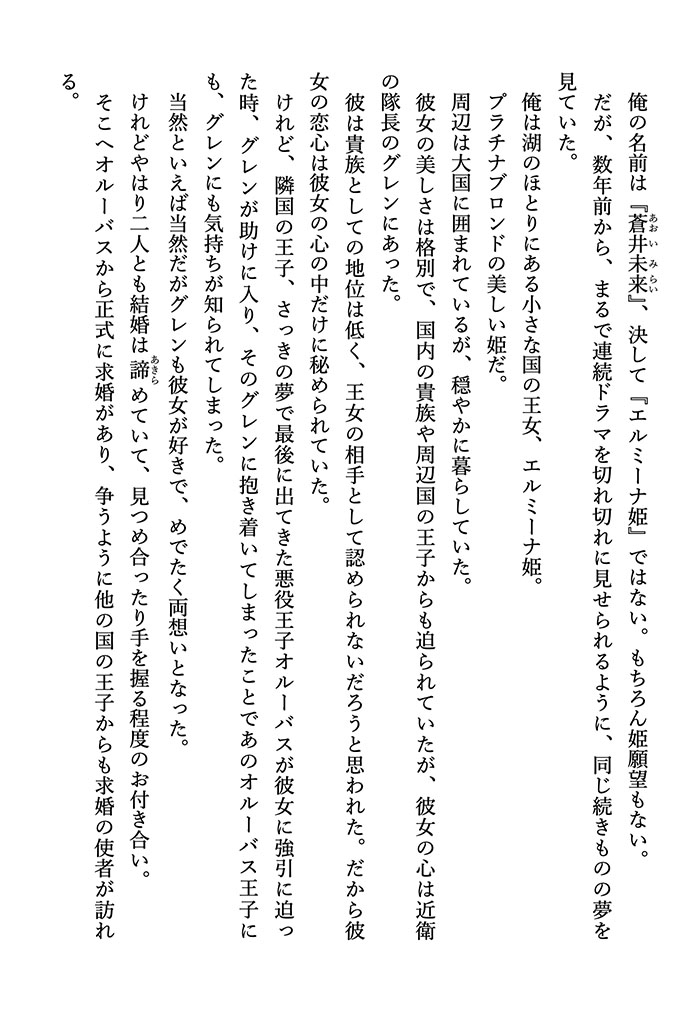 俺の名前は『蒼井未来』、決して『エルミーナ姫』ではない。もちろん姫願望もない。
あおいみらい
だが、数年前から、まるで連続ドラマを切れ切れに見せられるように、同じ続きものの夢を
見ていた。
俺は湖のほとりにある小さな国の王女、エルミーナ姫。
プラチナブロンドの美しい姫だ。
周辺は大国に囲まれているが、穏やかに暮らしていた。
彼女の美しさは格別で、国内の貴族や周辺国の王子からも迫られていたが、彼女の心は近衛
の隊長のグレンにあった。
彼は貴族としての地位は低く、王女の相手として認められないだろうと思われた。だから彼
女の恋心は彼女の心の中だけに秘められていた。
けれど、隣国の王子、さっきの夢で最後に出てきた悪役王子オルーバスが彼女に強引に迫っ
た時、グレンが助けに入り、そのグレンに抱き着いてしまったことであのオルーバス王子に
も、グレンにも気持ちが知られてしまった。
当然といえば当然だがグレンも彼女が好きで、めでたく両想いとなった。
けれどやはり二人とも結婚は諦めていて、見つめ合ったり手を握る程度のお付き合い。
あきら
そこへオルーバスから正式に求婚があり、争うように他の国の王子からも求婚の使者が訪れ
る。